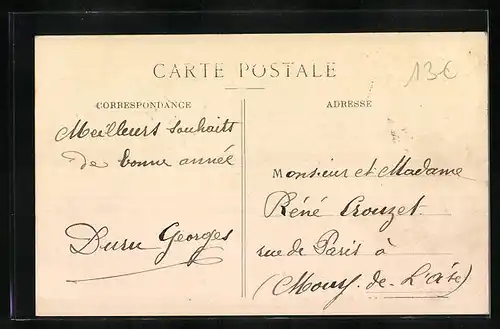 CARTE POSTALE
13€
CORRESPONDANCE
ADRESSE
Meilleurs souhaits
de bonne année
Duru Georges
Monsieur et Madame
Réné Crouzet
rue de Paris à
(Mouy. de. L'